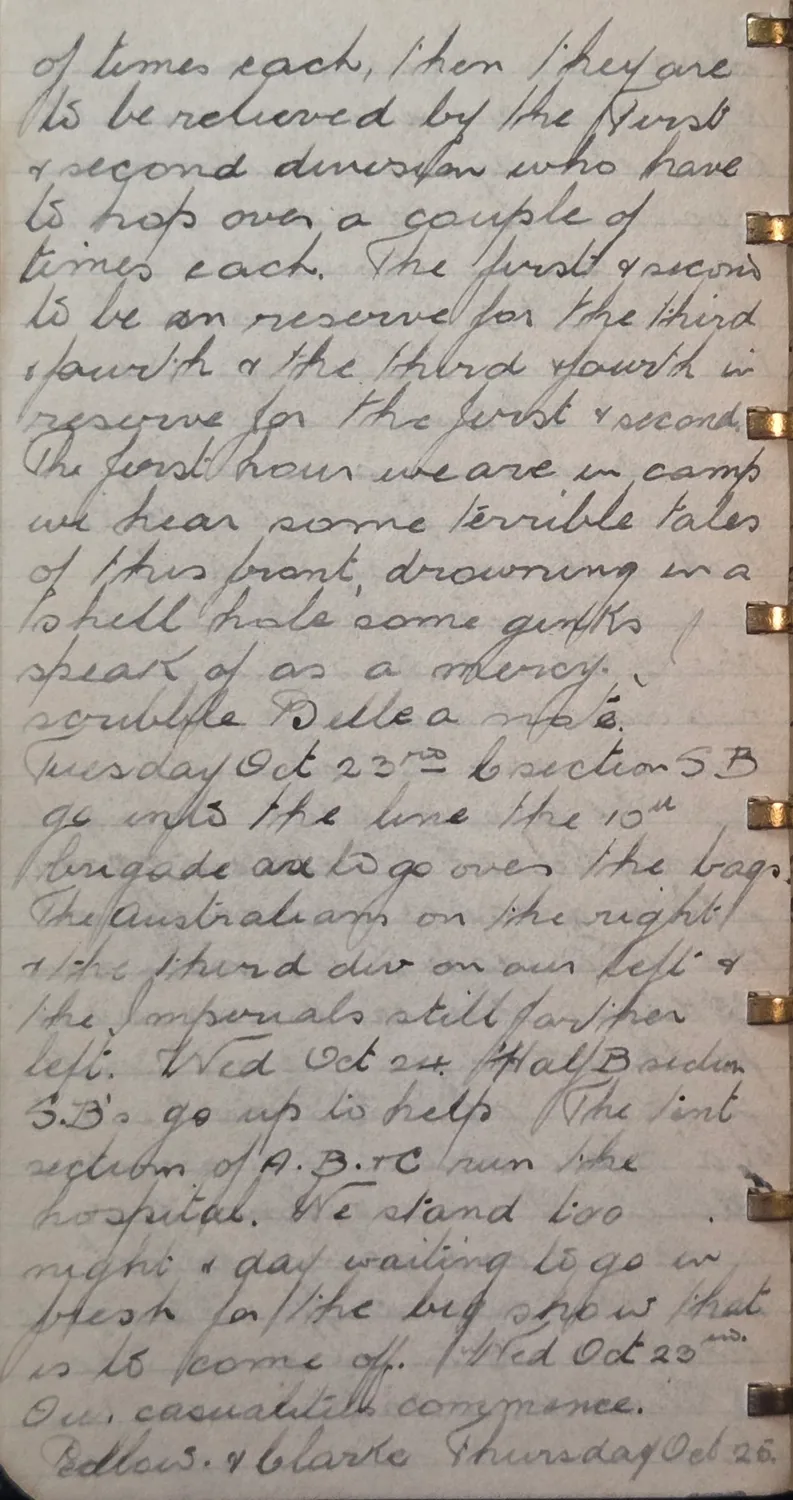 of times each, then they are
to be relieved by the First
& second division who have
to hop over a couple of
times each. The first & second
to be in reserve for the third
& fourth & the third & fourth in
reserve for the first & second.
The first hour we are in camp
we hear some terrible tales
of this front, drowning in a
shell hole some ginks
speak of as a mercy.
scribble Belle a note.
Tuesday Oct 23rd C section S B
go into the line the 10th
brigade are to go over the bags.
The Australians on the right
& the third div on our left &
the Imperials still farther
left. Wed Oct 24. Half B section
S.B's go up to help The tent
section of A. B. & C run the
hospital. We stand too
night & day waiting to go in
fresh for the big show that
is to come off. Wed Oct 23
Our casualities commence.
& Clarke Thursday Oct 25.